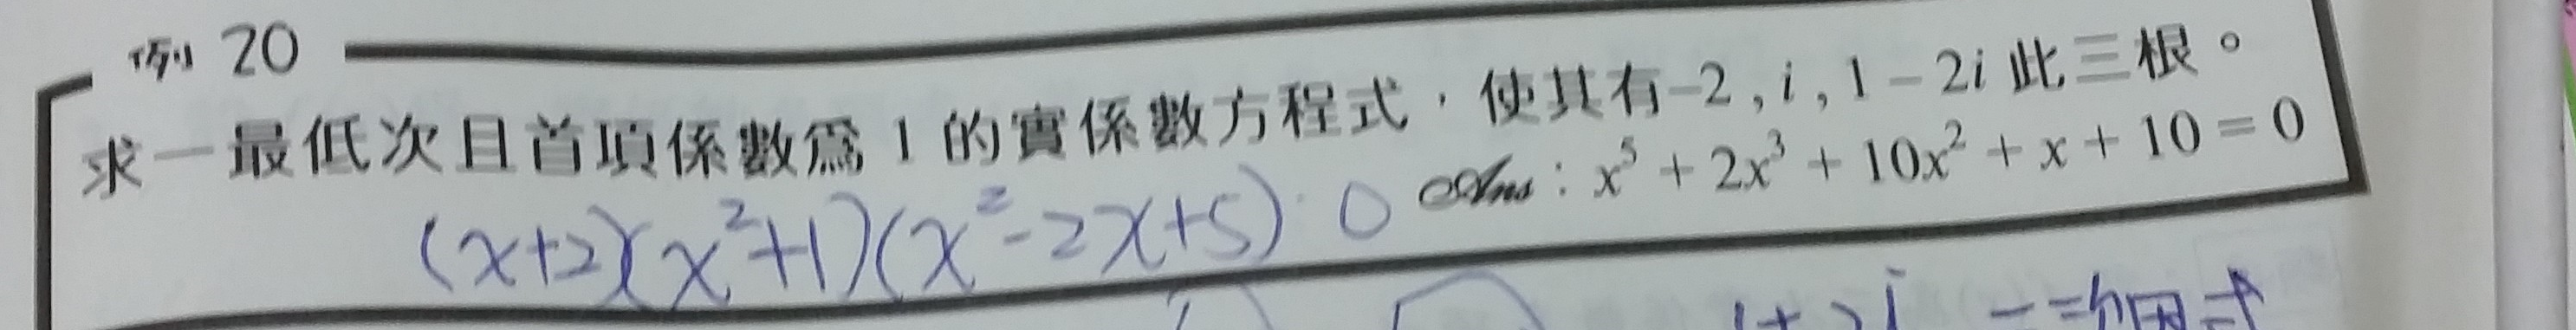 例 20
求一最低次且首項係數為 1 的實係數方程式，使其有–2 , i , 1 – 2i 此三根。
Ans : x⁵ + 2x³ + 10x² + x + 10 = 0
(x+2)(x²+1)(x²-2x+5) 0